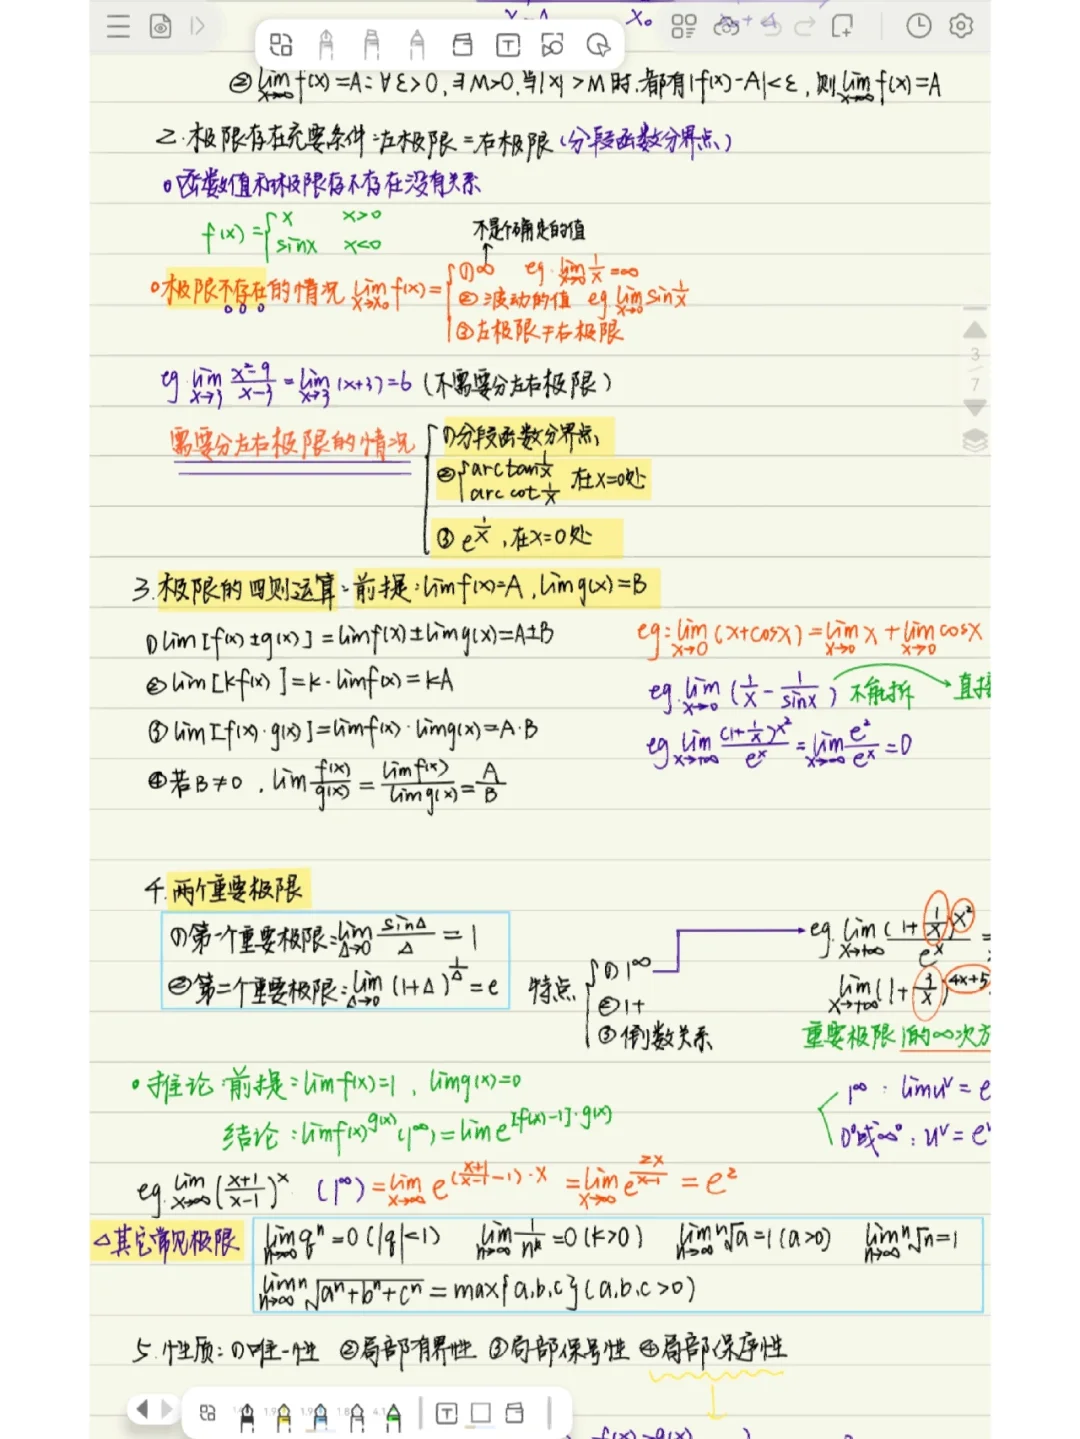 ②lim x→∞ f(x)=A:∀ε>0,∃M>0,当|x|>M时,都有|f(x)-A|<ε,则lim x→∞ f(x)=A
2.极限存在充要条件:左极限=右极限(分段函数分界点)
函数值和极限存不存在没有关系
f(x)={x x>0
sinx x<0
不是个确定的值
极限不存在的情况 lim x→x₀ f(x)={①∞ eg.lim x→0 1/x=∞
②波动的值 eg.lim x→0 sin1/x
③左极限≠右极限
eg.lim x→3 (x²-9)/(x-3)=lim x→3 (x+3)=6(不需要分左右极限)
需要分左右极限的情况
①分段函数分界点
②{arctan1/x
arccot1/x 在x=0处
③e^(1/x),在x=0处
3
7
3.极限的四则运算:前提:limf(x)=A,limg(x)=B
①lim[f(x)±g(x)]=limf(x)±limg(x)=A±B
eg:lim x→0 (x+cosx)=lim x→0 x+lim x→0 cosx
②lim[kf(x)]=k·limf(x)=kA
eg.lim x→0 (1/x-1/sinx) 不能拆
③lim[f(x)·g(x)]=limf(x)·limg(x)=A·B
eg lim x→+∞ (1+1/x)^x²/e^x=lim x→∞ e²/e^x=0
④若B≠0,lim f(x)/g(x)=limf(x)/limg(x)=A/B
4.两个重要极限
①第一个重要极限:lim Δ→0 sinΔ/Δ=1
②第二个重要极限:lim Δ→0 (1+Δ)^(1/Δ)=e
特点{①1^∞
②1+
③倒数关系
eg.lim x→+∞ (1+1/x)^x²/e^x=
重要极限 1的∞次方
推论:前提:limf(x)=1,limg(x)=0
结论:limf(x)^g(x)(1^∞)=lime^[f(x)-1]·g(x)
1^∞:limu^v=e
0^0或∞^0:u^v=e^v
eg.lim x→∞ ((x+1)/(x-1))^x (1^∞)=lim x→∞ e^((x+1)/(x-1)-1)·x=lim x→∞ e^(2x/(x-1))=e²
△其它常见极限
lim n→∞ q^n=0(|q|<1) lim n→∞ 1/n^k=0(k>0) lim n→∞ ⁿ√a=1(a>0) lim n→∞ ⁿ√n=1
lim n→∞ ⁿ√(aⁿ+bⁿ+cⁿ)=max{a,b,c}(a,b,c>0)
5.性质:①唯一性 ②局部有界性 ③局部保号性 ④局部保序性